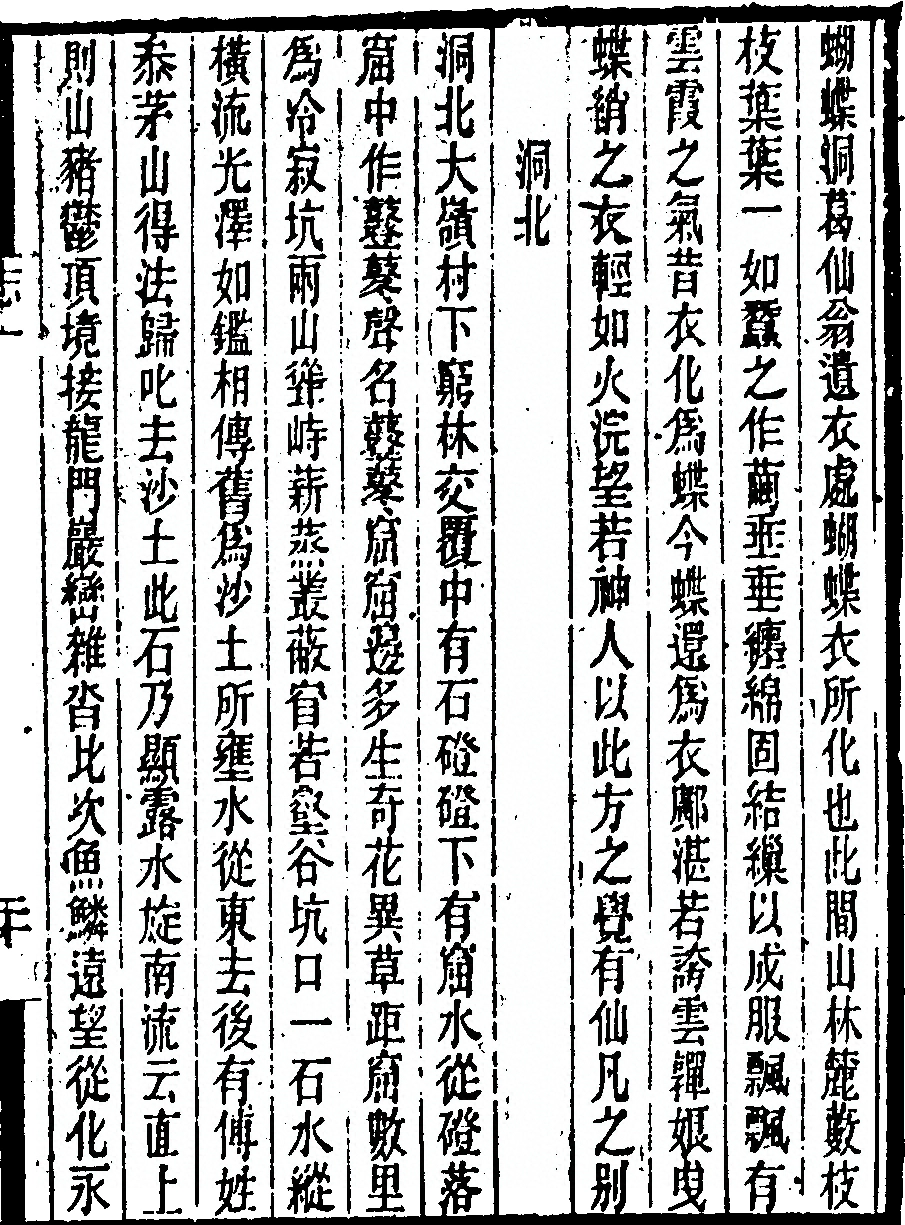 蝴蝶洞葛仙翁遺衣處蝴蝶衣所化也此間山林麓藪枝
枝葉葉一如蠶之作繭垂垂纏綿固結繅以成服飄飄有
雲霞之氣昔衣化爲蝶今蝶還爲衣鄺湛若謫雲嚲娘曳
蝶綃之衣輕如火浣望若神人以此方之覺有仙凡之别
洞北
洞北大嶺村下窮林交覆中有石磴磴下有窟水從磴落
窟中作鼞鼞聲名鼞鼞窟窟邊多生奇花異草距窟數里
爲冷寂坑兩山聳峙薪蒸叢蔽窅若壑谷坑口一石水縱
橫流光澤如鑑相傳舊爲沙土所壅水從東去後有傅姓
叅茅山得法歸叱去沙土此石乃顯露水旋南流云直上
則山豬鬱頂境接龍門巖巒雜沓比次魚鱗遠望從化永